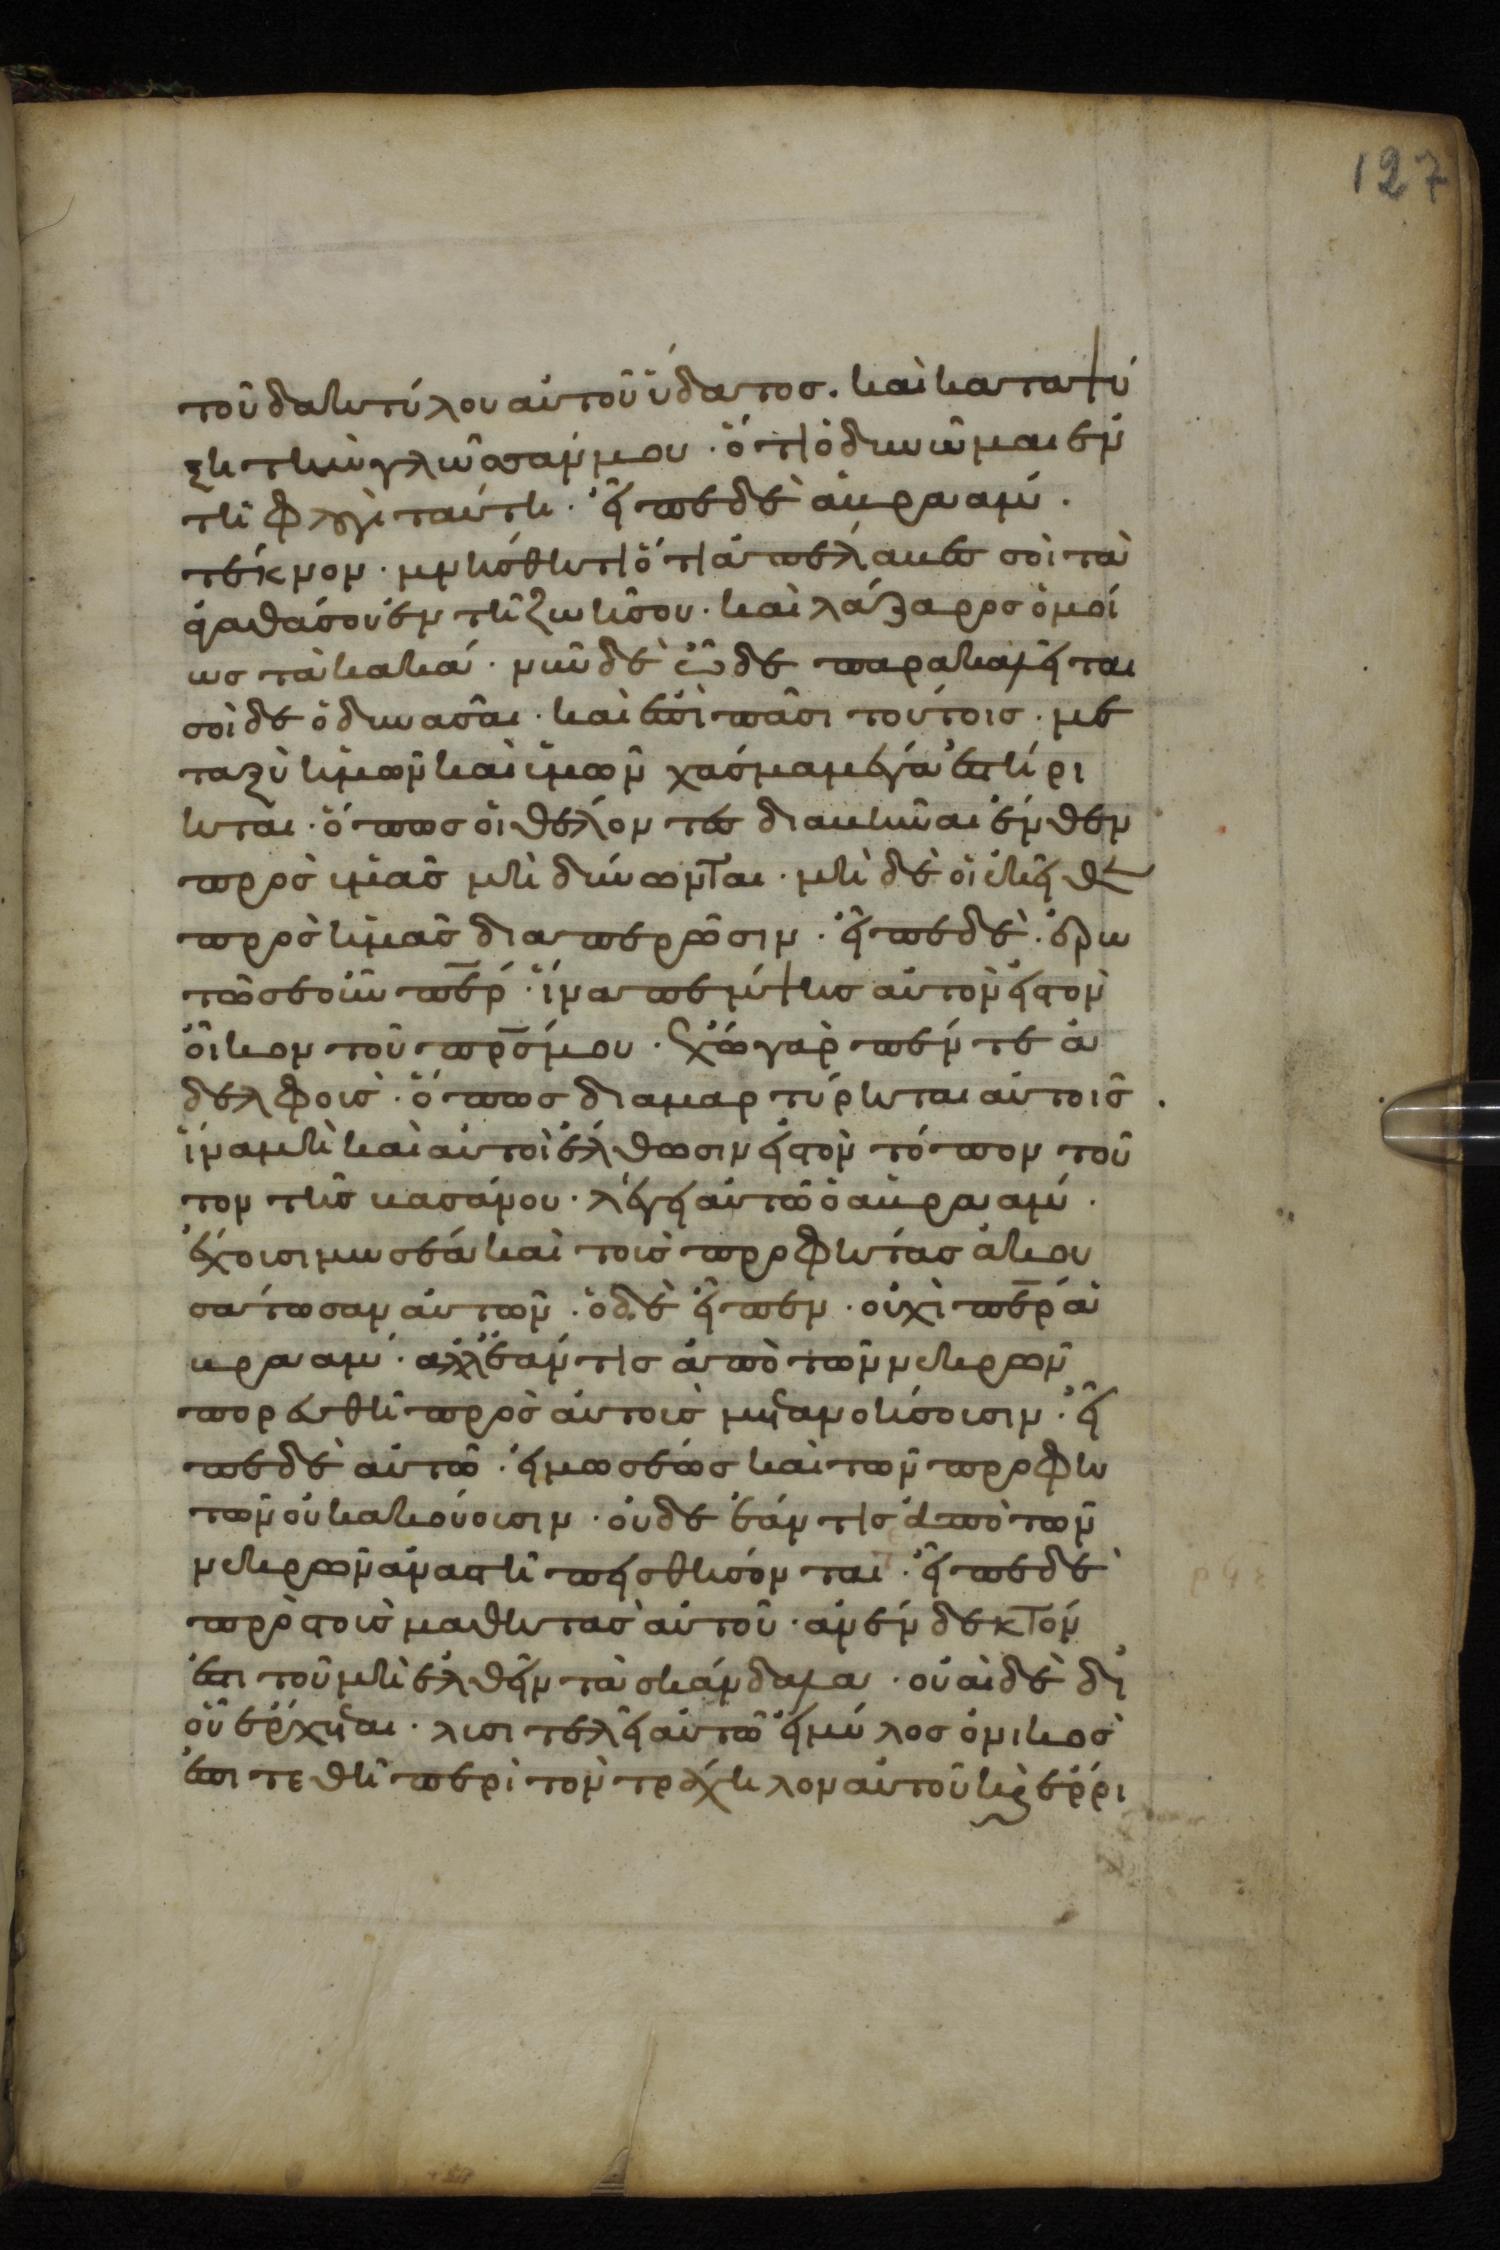 127
τοῦ δακτύλου αὐτοῦ ὕδατος. καὶ καταψύ
ξη τὴν γλῶσσάν μου · ὅτι ὀδυνῶμαι ἐν
τῆ φλογὶ ταύτη · εἶπε δὲ ἀβραάμ ·
τέκνον · μνήσθητι ὅτι ἀπέλαβες σοὶ τὰ
ἀγαθά σου ἐν τῆ ζωῆ σου · καὶ λάζαρος ὁμοί
ως τὰ κακά · νῦν δὲ ὧδε παρακαλεῖται
σοὶ δε ὀδυνᾶσαι · καὶ ἐπὶ πᾶσι τούτοις · με
ταξὺ ἡμῶν καὶ ὑμῶν χάσμα μέγα ἐστήρι
κται · ὅπως οἱ θέλοντες διαβῆναι ἔνθεν
πρὸς ὑμᾶς μὴ δύνωνται · μὴ δὲ οἱ ἐκεῖθεν
πρὸς ἡμᾶς διαπερῶσιν · εἶπε δὲ · ἐρω
τῶ σε οὖν περ · ἵνα πέμψης αὐτὸν εἰς τὸν
οἶκον τοῦ πρσ μου · ἔχω γὰρ πέντε ἀ
δελφούς · ὅπως διαμαρτύρηται αὐτοῖς
ἵνα μὴ καὶ αὐτοὶ ἔλθωσιν εἰς τὸν τόπον τοῦ
τον τῆς βασάνου · λέγει αὐτῶ ὁ ἀβραάμ ·
ἔχουσι μωσέα καὶ τοὺς προφήτας ἀκου
σάτωσαν αὐτῶν · ὁ δὲ εἶπεν · οὐχὶ περ ἀ
βραάμ · ἀλλ ἐάν τις ἀπὸ τῶν νεκρῶν
πορευθῆ πρὸς αὐτοὺς μετανοήσουσιν · εἶ
πε δὲ αὐτῶ · εἰ μωσέως καὶ τῶν προφη
τῶν οὐκ ἀκούουσιν · οὐδε ἐάν τις ἀπὸ τῶν
νεκρῶν ἀναστῆ πεισθήσονται · εἶπε δὲ
πρὸς τοὺς μαθητὰς αὐτοῦ · ἀνένδεκτόν
ἐστι τοῦ μὴ ἐλθεῖν τὰ σκάνδαλα · οὐαὶ δὲ δι
οὗ ἔρχεται · λυσιτελεῖ αὐτῶ εἰ μύλος ὀνικὸς
ἐπιτεθῆ περὶ τὸν τράχηλον αὐτοῦ καὶ ἔρρι